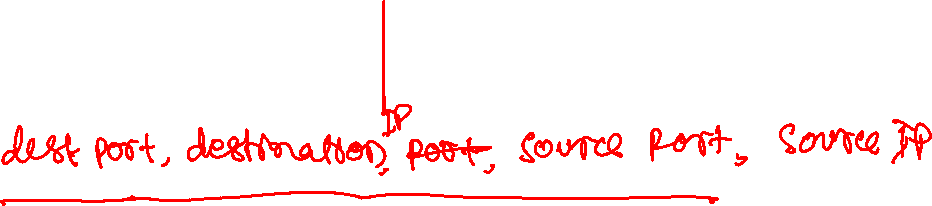 dest port, destination IP, source port, source IP